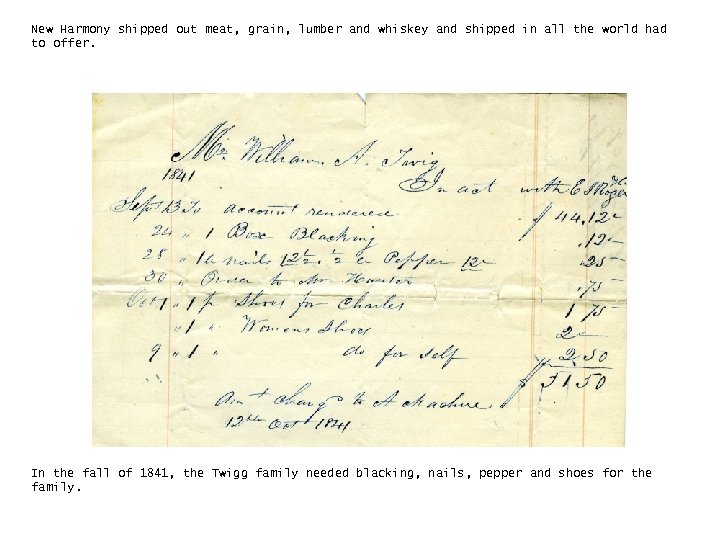 New Harmony shipped out meat, grain, lumber and whiskey and shipped in all the world had
to offer.
Mr. William A. Twig
1841
In act with E S
Sept 13 To account rendered $ 44,12
24 " 1 Box Blacking ,12
28 " nails 12½ ½ Pepper 12 ,25
30 " Order to Mr ,75
Oct 1 " 1 pr Shoes for Charles 1 75
" 1 " Womens Shoes 2
9 " 1 " do for self 2.50
$ 51 50
to A
12th Oct 1841
In the fall of 1841, the Twigg family needed blacking, nails, pepper and shoes for the
family.